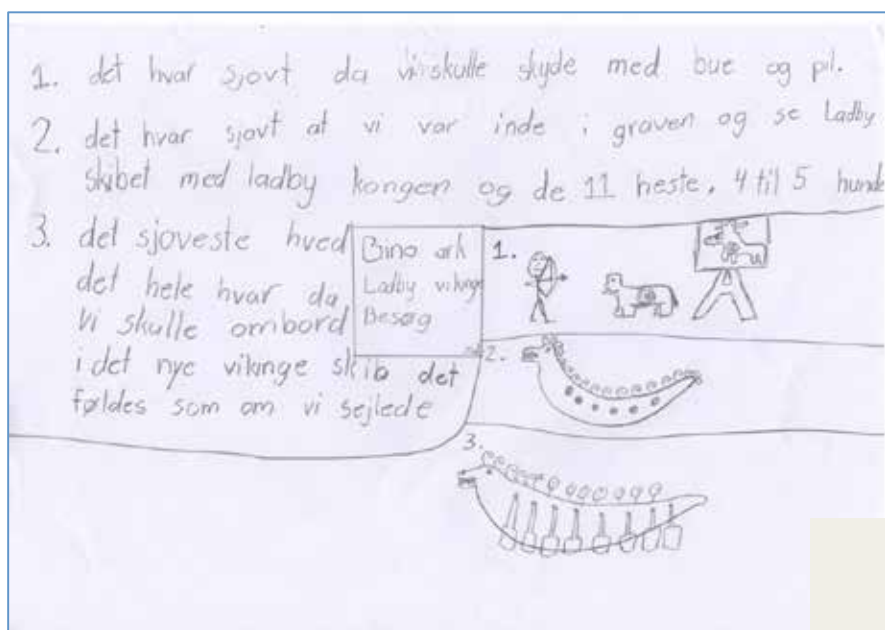 1. det hvar sjovt da vi skulle skyde med bue og pl.
2. det hvar sjovt at vi var inde i graven og se Ladby
skibet med ladby kongen og de 11 heste. 4 til 5 hunde
3. det sjoveste hved
det hele hvar da
vi skulle ombord
i det nye vikinge skib det
føldes som om vi sejlede
Bino ark
Ladby vikinge
Besøg
1.
2.
3.